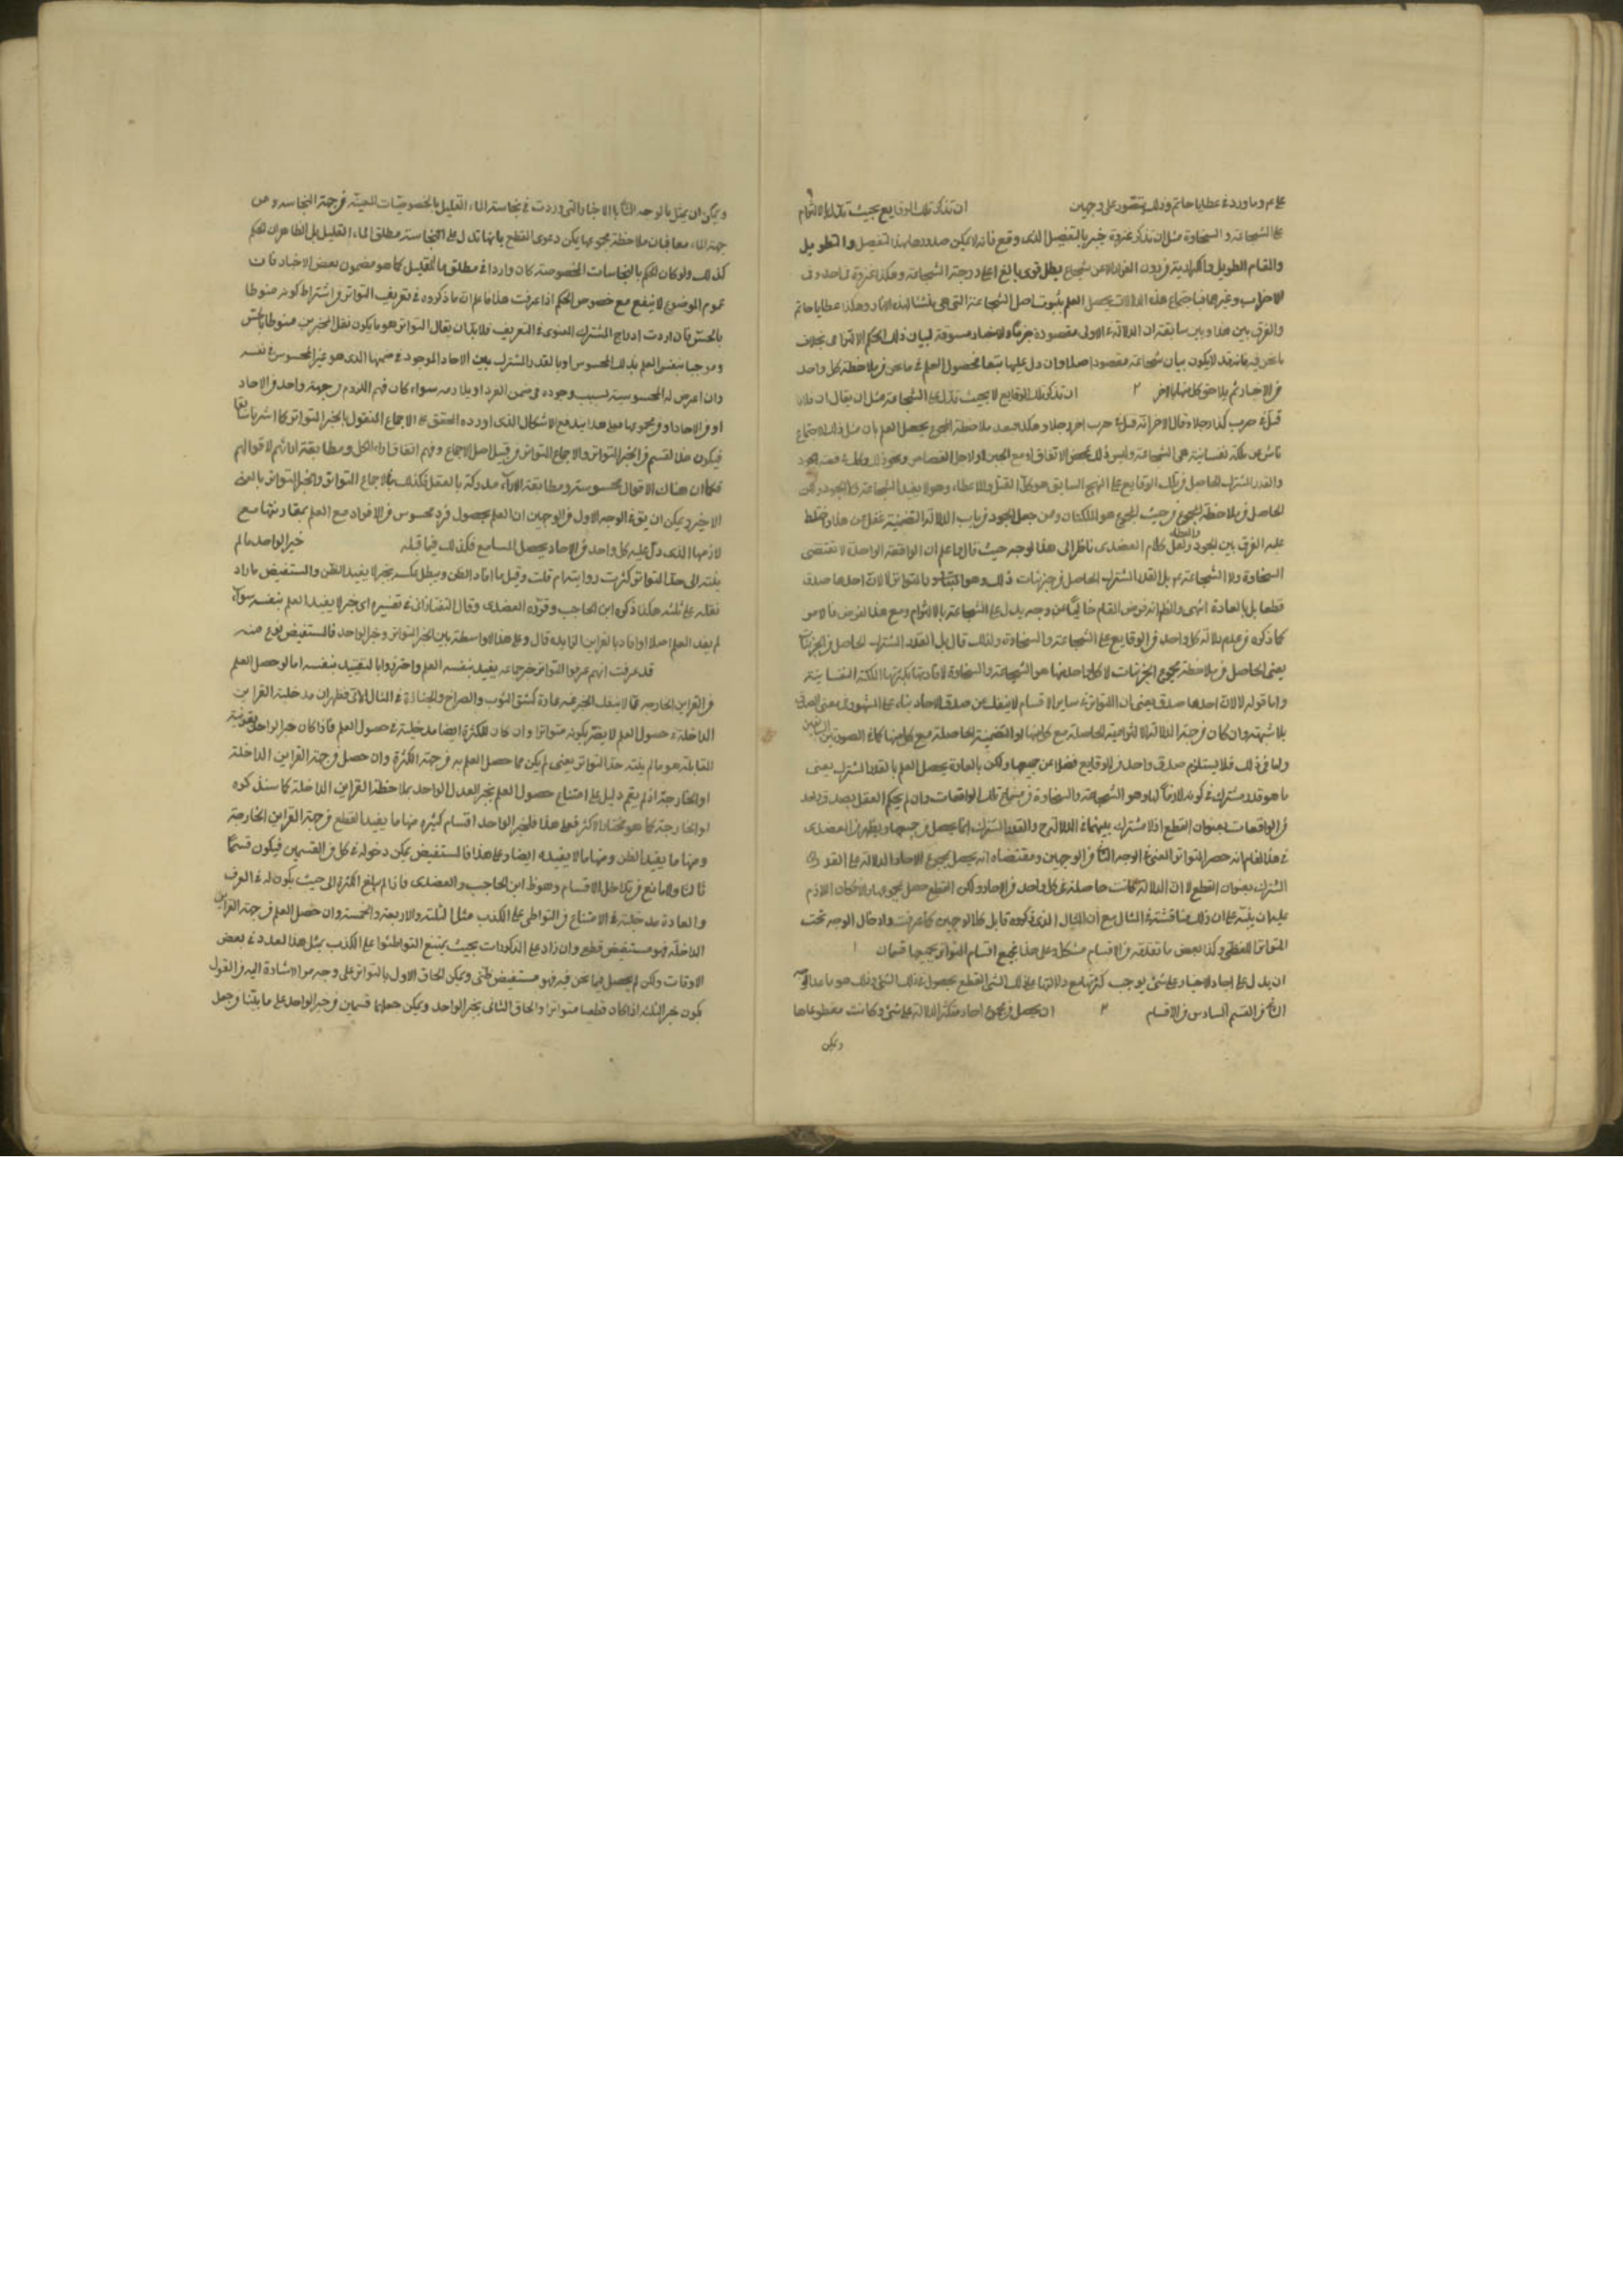 علي ع وما ورد في عطايا حاتم وذلك يتصور على وجهين ان تذكر تلك الوقايع بحيث تدل بالالتزام
على الشجاعة و السخاوة مثل ان تذكر غزوة خيبر بالتفصيل الذي وقع فانه لا يمكن صدور هذا التفصيل والتطويل
والمقام الطويل والكرار من دون الفرار الا عن شجاع بطل قوي بالغ اعلى درجة الشجاعة وهكذا غزوة احد وفي
الاحزاب وغيرها فباجتماع هذه الدلالات يحصل العلم بثبوت اصل الشجاعة التي هي منشأ لهذه الاثار وهكذا عطايا حاتم
والفرق بين هذا وبين سابقه ان الدلالة في الاولى مقصودة جزما والاخبار مسوقة لبيان ذلك الحكم الالتزامي بخلاف
ما نحن فيه فانه قد لا يكون بيان شجاعته مقصودا اصلا وان دل عليها تبعا فحصول العلم في ما نحن فيه ملاحظة كل واحد
من الاخبار ثم يلاحق كل منها بالاخر ٢ ان تذكر تلك الوقايع لا بحيث تدل على الشجاعة مثل ان يقال ان فلانا
قتل في حرب كذا رجلا وقال الاخر انه قتل في حرب اخر رجلا وهكذا فبعد ملاحظة المجموع يحصل العلم بان مثل ذلك الاجتماع
ناش عن ملكة نفسانية هي الشجاعة وليس ذلك بمحض الاتفاق او مع الجبن او لاجل القصاص ونحو ذلك وكذا في قصة الجود
والقدر المشترك الحاصل من تلك الوقايع على النهج السابق هو كلي القتل والاعطاء وهو لا يفيد الشجاعة ولا الجود ولكن
الحاصل من ملاحظة المجموع من حيث المجموع هو الملكتان ومن جعل الجود من باب الدلالة التضمنية غفل عن هذا وخلط
عليه الفرق بين الجود والعطاء ولعل كلام العضدي ناظر الى هذا لوجه حيث قال واعلم ان الواقعة الواحدة لا تقتضي
السخاوة ولا الشجاعة بل القدر المشترك الحاصل من جزئيات ذلك وهو المتواتر لا لان احدها صدق
قطعا بل بالعادة انتهى
كما ذكره من عدم دلالة كل واحد من الوقايع على الشجاعة والسخاوة ولذلك قال بل القدر المشترك الحاصل من الجزئيات
يعني الحاصل من ملاحظة مجموع الجزئيات لا كل واحد منها هو الشجاعة والسخاوة
واما قوله لا لان احدها صدق يعني ان التواتر في ساير الاقسام لا ينفك عن صدق الاحاد بناء على المشهور
بلا شبهة وان كان من جهة الدلالة الالتزامية الحاصلة مع كل منها او التضمنية الحاصلة مع كل منها كما في الصورتين السابقتين
واما في ذلك فلا يستلزم صدق واحد من الوقايع فضلا عن جميعها ولكن بالعادة يحصل العلم بالقدر المشترك يعني
ما هو قدر مشترك في كونه لازما لها وهو الشجاعة والسخاوة من مجموع تلك الواقعات وان لم يحكم العقل بصدق واحد
من الواقعات بعنوان القطع اذ لا مشترك بينهما في الدلالة والقدر المشترك انما يحصل من جميعها ويظهر من العضدي
في هذا المقام انه حصر التواتر المعنوي في الوجه الثاني من الوجهين ومقتضاه انه يحصل بمجموع الاحاد الدلالة على القدر
المشترك بعنوان القطع لا ان الدلالة كانت حاصلة في كل واحد من الاحاد ولكن القطع حصل بمجموعها والا فكان اللازم
عليه ان ينبه على ان ذلك مناقشة في المثال مع ان المثال الذي ذكروه قابل لكلا الوجهين كما عرفت وادخال الوجه تحت
المتواتر اللفظي وكذا بعض ما تقدمه من الاقسام مشكل وعلى هذا فجميع اقسام التواتر بجميعها قسمان ١
ان يدل على احاد الاخبار على شيء يوجب كثرتها مع دلالتها على ذلك الشيء القطع بحصول ذلك الشيء وذلك هو ما عدا الوجه
الثاني من القسم السادس من الاقسام ٢ ان يحصل من مجموع احاد متكثرة الدلالة على شيء وكانت مقطوعا بها
ويمكن
ويمكن ان يمثل بالوجه الثاني بالاخبار التي وردت في نجاسة الماء القليل بالخصوصيات المعينة من جهة النجاسة ومن
جهة الماء معا فبان ملاحظة مجموعها يمكن دعوى القطع بانها تدل على نجاسة مطلق الماء القليل بل الظاهر ان الحكم
كذلك ولو كان الحكم بالنجاسات المخصوصة كان واردا في مطلق الماء القليل كما هو مضمون بعض الاخبار فان
عموم الموضوع لا ينفع مع خصوص الحكم اذا عرفت هذا فاعلم ان ما ذكروه في تعريف التواتر من اشتراط كونه منوطا
بالحس فان اردت ادراج المشترك المعنوي في التعريف فلا بد ان يقال التواتر هو ما يكون نقل المخبرين منوطا بالحس
وموجبا بنفس العلم بذلك المحسوس او بالقدر المشترك بين الاحاد الموجود في ضمنها الذي هو غير المحسوس في نفسه
وان اعرض له المحسوسية بسبب وجوده في ضمن الفرد او بلازمه سواء كان فهم اللزوم من جهة واحد من الاحاد
او من الاحاد او من مجموعها فعلى هذا يندفع الاشكال الذي اورده المحقق على الاجماع المنقول بالخبر المتواتر كما اشرنا سابقا
فيكون هذا القسم من الخبر المتواتر والاجماع المتواتر من قبيل اصل الاجماع وفهم اتفاق اراء الكل ومطابقة ارائهم لاقوالهم
فكما ان هناك الاقوال محسوسة ومطابقة الاراء مدركة بالعقل فكذلك الاجماع المتواتر والخبر المتواتر بالمعنى
الاخير ويمكن ان يق في الوجه الاول من الوجهين ان العلم بحصول فرد محسوس من الافراد مع العلم بمقارنتها مع
لازمها الذي دل عليه كل واحد من الاحاد يحصل للسامع فكذلك فيما قبله خبر الواحد ما لم
ينته الى حد التواتر كثرت رواته ام قلت وقيل ما افاد الظن ويبطل عكسه بخبر لا يفيد الظن والمستفيض ما زاد
نقلته على ثلثة هكذا ذكره ابن الحاجب وقرره العضدي وقال التفتازاني في تفسيره اي خبر لا يفيد العلم بنفسه سواء
لم يفد العلم اصلا او افاد بالقراين الزايدة قال وعلى هذا لا واسطة بين الخبر المتواتر وخبر الواحد فالمستفيض نوع منه
قد عرفت انهم عرفوا التواتر بخبر جماعة يفيد بنفسه العلم واحترزوا بالتقييد بنفسه اما لو حصل العلم
من القراين الخارجة مما لا ينفك الخبر عنه عادة كشق الثوب والصراخ والجنازة في المثال الاتي فظهر ان مدخلية القراين
الداخلة في حصول العلم لا يضر بكونه متواترا وان كان للكثرة ايضا مدخلية في حصول العلم فاذا كان خبر الواحد بقرينة
المقابلة هو ما لم ينته حد التواتر يعني لم يكن مما حصل العلم به من جهة الكثرة وان حصل من جهة القراين الداخلة
او الخارجة اذ لم يقم دليل على امتناع حصول العلم بخبر العدل الواحد بملاحظة القراين الداخلة كما سنذكره
او الخارجة كما هو مختار الاكثر فعلى هذا فلخبر الواحد اقسام كثيرة منها ما يفيد القطع من جهة القراين الخارجة
ومنها ما يفيد الظن ومنها ما لا يفيده ايضا وعلى هذا فالمستفيض يمكن دخوله في كل من القسمين فيكون قسما
ثالثا ولا مانع من تداخل الاقسام وهو ظ ابن الحاجب والعضدي فاذا لم يبلغ الكثرة الى حيث يكون له في العرف
والعادة مدخلية في الامتناع من التواطي على الكذب مثل الثلثة والاربعة والخمسة وان حصل العلم من جهة القراين
الداخلة فهو مستفيض قطعي وان زاد على المذكورات بحيث يمتنع التواطئوا على الكذب بمثل هذا العدد في بعض
الاوقات ولكن لم يحصل فيما نحن فيه فهو مستفيض ظني ويمكن الحاق الاول بالتواتر على وجه مر الاشارة اليه من القول
بكون خبر الثلثة اذا كان قطعيا متواترا والحاق الثاني بخبر الواحد ويمكن جعلهما قسمين من خبر الواحد على ما بيننا وجعل